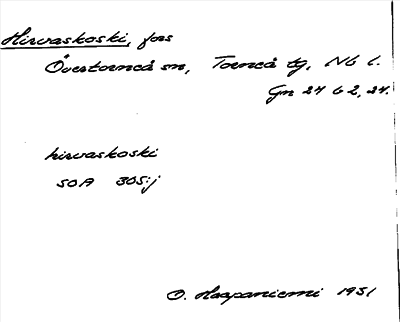 Hirvaskoski, fors
Övertorneå sn, Torneå tg, Nb l.
Gm 24 G 2, 24.
hirvaskoski
SOA 305:j
O. Haapaniemi 1931